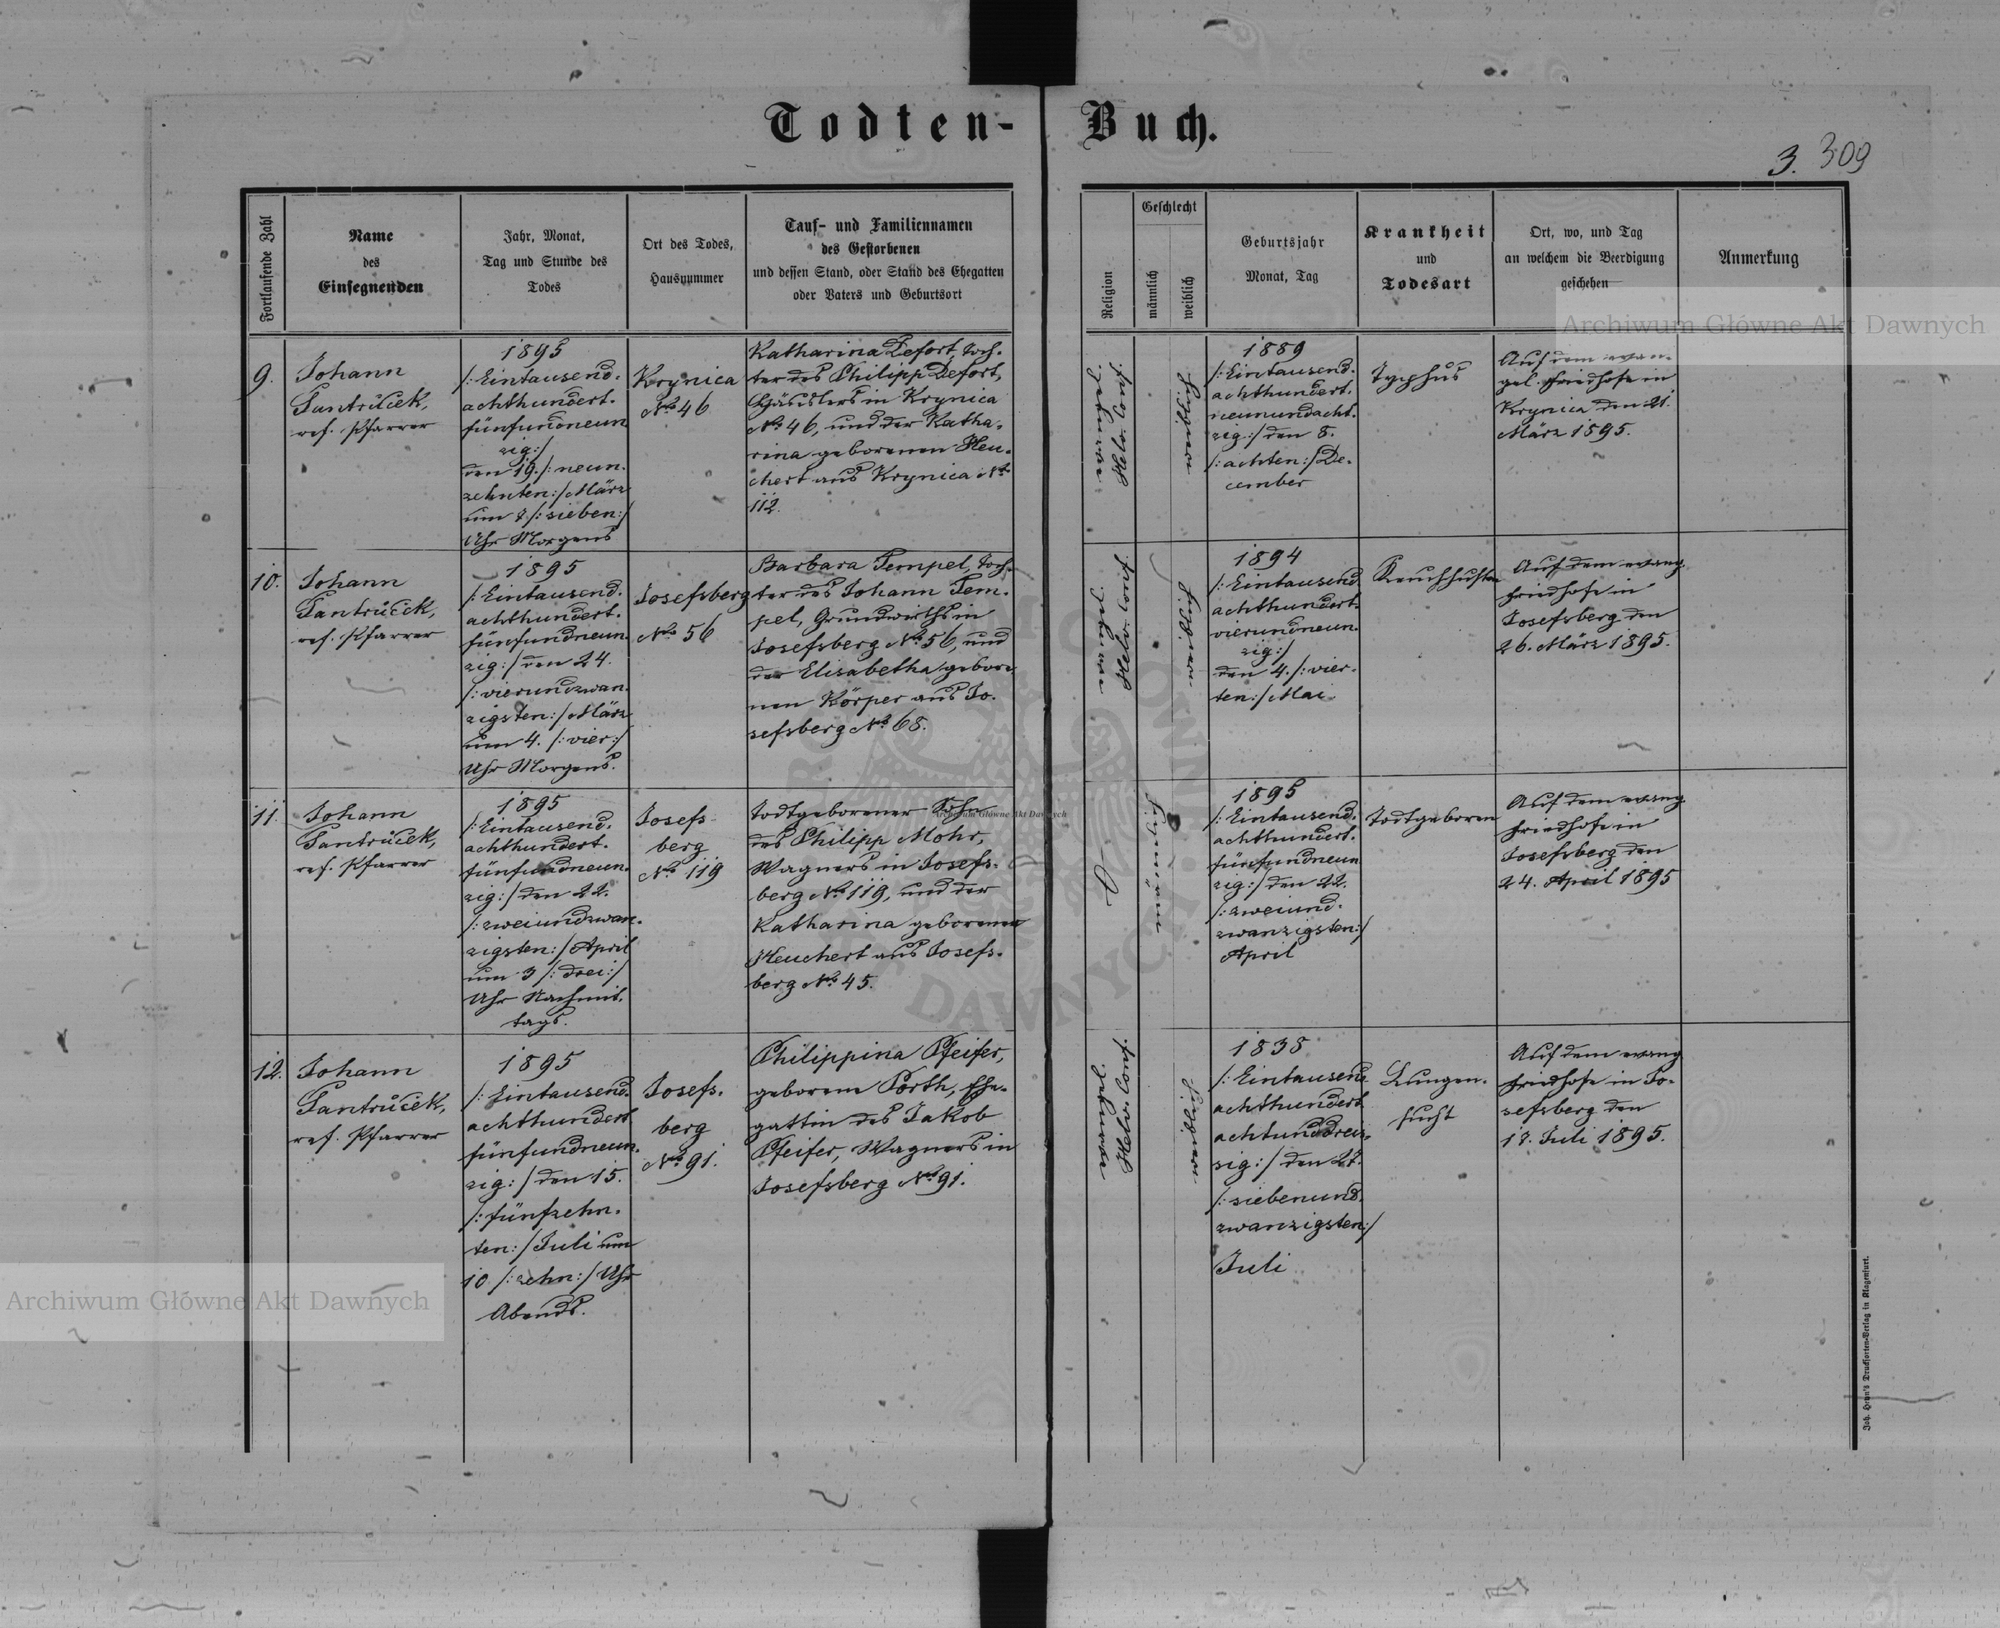 Todten-Buch.
3. 309
Fortlaufende Zahl
Name
des
Einsegnenden
Jahr, Monat,
Tag und Stunde des
Todes
Ort des Todes,
Hausnummer
Tauf- und Familiennamen
des Gestorbenen
und dessen Stand, oder Stand des Ehegatten
oder Vaters und Geburtsort
Religion
Geschlecht
männlich
weiblich
Geburtsjahr
Monat, Tag
Krankheit
und
Todesart
Ort, wo, und Tag
an welchem die Beerdigung
geschehen
Anmerkung
9.
Johann
Pantrůček,
ref. Pfarrer
1895
/:Eintausend-
achthundert-
fünfundneun
zig:/
den 19./:neun-
zehnten:/März
um 7/:sieben:/
Uhr Morgens
Krynica
No 46
Katharina Defort, Toch-
ter des Philipp Defort,
Häuslers in Krynica
No 46, und der Katha-
rina geborenen Heu-
chert aus Krynica No
112.
evangel.
Helv. Conf.
weiblich
1889
/:Eintausend-
achthundert-
neunundacht-
zig:/ den 8.
/:achten:/De-
cember
Typhus
Auf dem evan-
gel. Friedhofe in
Krynica den 21.
März 1895.
10.
Johann
Pantrůček,
ref. Pfarrer
1895
/:Eintausend-
achthundert-
fünfundneun-
zig:/ den 24.
/:vierundzwan-
zigsten:/März
um 4. /:vier:/
Uhr Morgens.
Josefsberg
No 56
Barbara Tempel, Toch-
ter des Johann Tem-
pel, Grundwirths in
Josefsberg No 56, und
der Elisabetha gebore-
nen Körper aus Jo-
sefsberg No 68.
evangel.
Helv. Conf.
weiblich
1894
/:Eintausend
achthundert-
vierundneun-
zig:/
den 4./:vier-
ten:/Mai
Keuchhusten
Auf dem evang.
Friedhofe in
Josefsberg den
26. März 1895.
11.
Johann
Pantrůček,
ref. Pfarrer
1895
/:Eintausend-
achthundert-
fünfundneun-
zig:/ den 22.
/:zweiundzwan-
zigsten:/April
um 3 /:drei:/
Uhr Nachmit-
tags.
Josefs-
berg
No 119
Todtgeborener Sohn
des Philipp Mohr,
Wagners in Josefs-
berg No 119, und der
Katharina geborenen
Heuchert aus Josefs-
berg No 45.
männlich
1895
/:Eintausend-
achthundert-
fünfundneun
zig:/ den 22.
/:zweiund-
zwanzigsten:/
April
Todtgeboren
Auf dem evang.
Friedhofe in
Josefsberg den
24. April 1895
12.
Johann
Pantrůček,
ref. Pfarrer
1895
/:Eintausend-
achthundert
fünfundneun-
zig:/ den 15.
/:fünfzehn-
ten:/Juli um
10 /:zehn:/ Uhr
Abends.
Josefs-
berg
No 91.
Philippina Pfeifer,
geborene Porth, Ehe-
gattin des Jakob
Pfeifer, Wagners in
Josefsberg No 91.
evangel.
Helv. Conf.
weiblich
1838
/:Eintausend-
achthundert
achtunddreis-
sig:/ den 27.
/:siebenund-
zwanzigsten:/
Juli
Lungen-
sucht
Auf dem evang
Friedhofe in Jo-
sefsberg den
17. Juli 1895.
Joh. Heyn's Drucksorten-Verlag in Klagenfurt.
Archiwum Główne Akt Dawnych
Archiwum Główne Akt Dawnych
Archiwum Główne Akt Dawnych